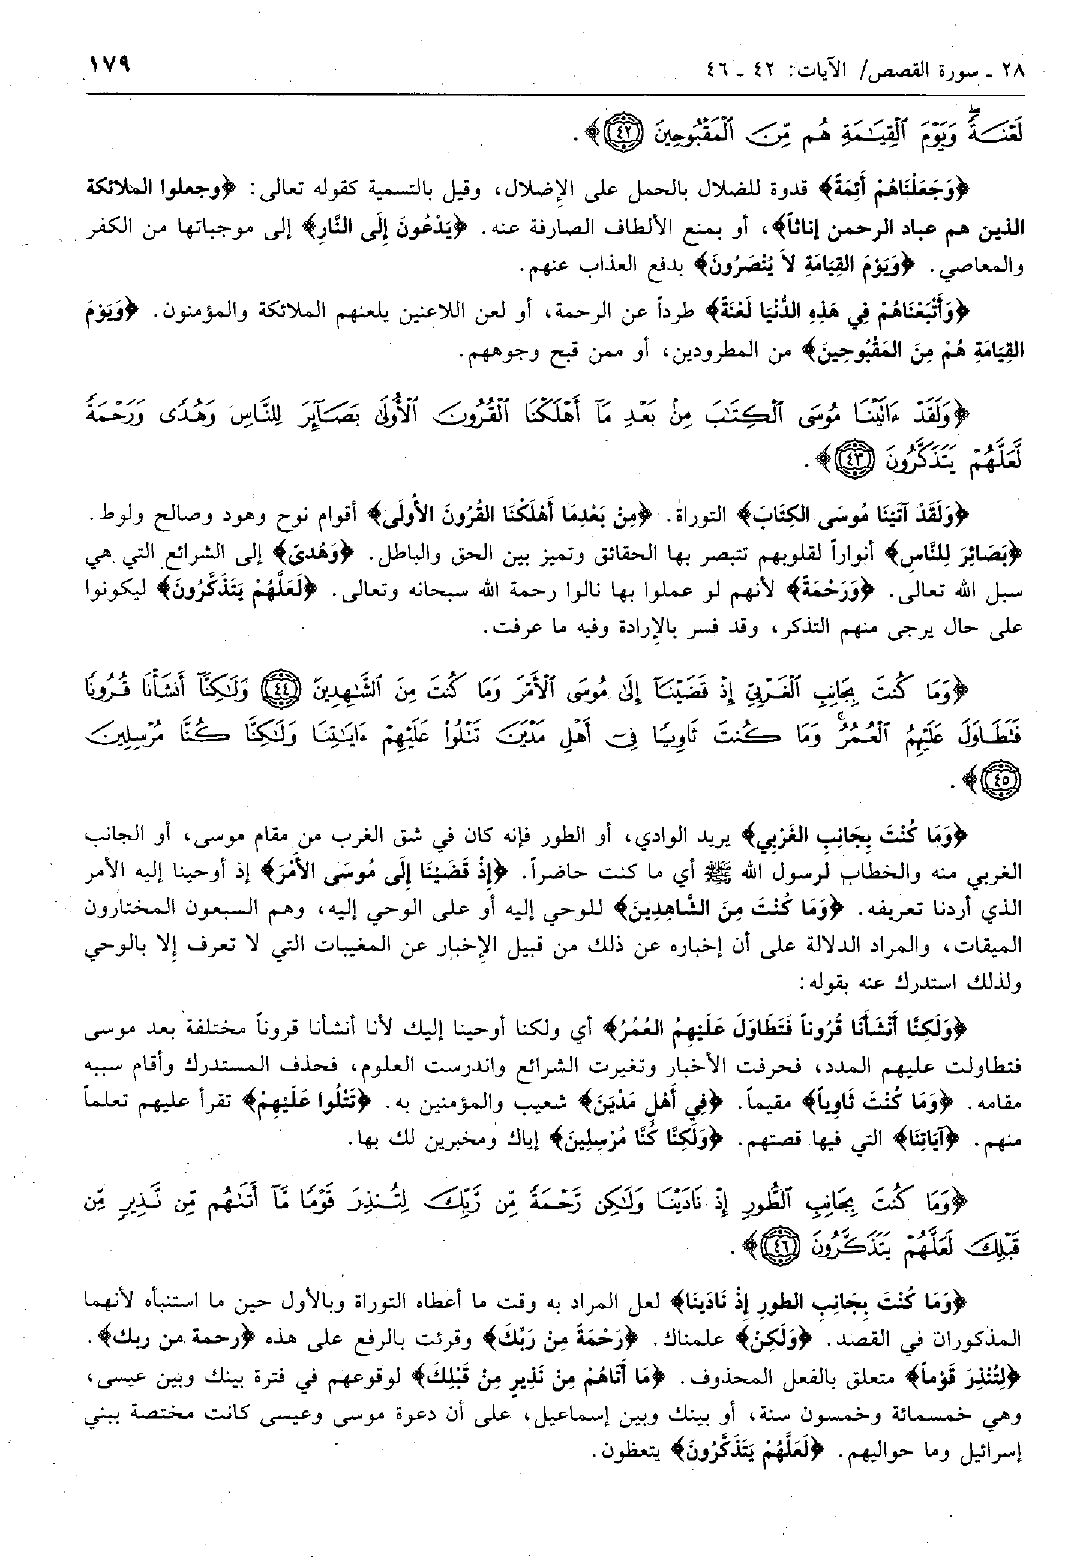 ٢٨ - سورة القصص/ الآيات: ٤٢ - ٤٦ ١٧٩
لَعْنَةً وَيَوْمَ الْقِيَامَةِ هُم مِّنَ الْمَقْبُوحِينَ ﴿٤٢﴾.
﴿وَجَعَلْنَاهُمْ أَئِمَّةً﴾ قدوة للضلال بالحمل على الإضلال، وقيل بالتسمية كقوله تعالى: ﴿وجعلوا الملائكة
الذين هم عباد الرحمن إناثاً﴾، أو بمنع الألطاف الصارفة عنه. ﴿يَدْعُونَ إِلَى النَّارِ﴾ إلى موجباتها من الكفر
والمعاصي. ﴿وَيَوْمَ القِيَامَةِ لاَ يُنْصَرُونَ﴾ بدفع العذاب عنهم.
﴿وَأَتْبَعْنَاهُمْ فِي هَذِهِ الدُّنْيَا لَعْنَةً﴾ طرداً عن الرحمة، أو لعن اللاعنين يلعنهم الملائكة والمؤمنون. ﴿وَيَوْمَ
القِيَامَةِ هُمْ مِنَ المَقْبُوحِينَ﴾ من المطرودين، أو ممن قبح وجوههم.
﴿وَلَقَدْ ءَاتَيْنَا مُوسَى الْكِتَابَ مِنْ بَعْدِ مَا أَهْلَكْنَا الْقُرُونَ الْأُولَى بَصَائِرَ لِلنَّاسِ وَهُدًى وَرَحْمَةً
لَّعَلَّهُمْ يَتَذَكَّرُونَ ﴿٤٣﴾.
﴿وَلَقَدْ آتَيْنَا مُوسَى الكِتَابَ﴾ التوراة. ﴿مِنْ بَعْدِمَا أَهْلَكْنَا القُرُونَ الأُولَى﴾ أقوام نوح وهود وصالح ولوط.
﴿بَصَائِرَ لِلنَّاسِ﴾ أنواراً لقلوبهم تتبصر بها الحقائق وتميز بين الحق والباطل. ﴿وَهُدىً﴾ إلى الشرائع التي هي
سبل الله تعالى. ﴿وَرَحْمَةً﴾ لأنهم لو عملوا بها نالوا رحمة الله سبحانه وتعالى. ﴿لَعَلَّهُمْ يَتَذَكَّرُونَ﴾ ليكونوا
على حال يرجى منهم التذكر، وقد فسر بالإرادة وفيه ما عرفت.
﴿وَمَا كُنتَ بِجَانِبِ الْغَرْبِيِّ إِذْ قَضَيْنَا إِلَى مُوسَى الْأَمْرَ وَمَا كُنتَ مِنَ الشَّاهِدِينَ ﴿٤٤﴾ وَلَكِنَّا أَنشَأْنَا قُرُونًا
فَتَطَاوَلَ عَلَيْهِمُ الْعُمُرُ وَمَا كُنتَ ثَاوِيًا فِي أَهْلِ مَدْيَنَ تَتْلُوا عَلَيْهِمْ ءَايَاتِنَا وَلَكِنَّا كُنَّا مُرْسِلِينَ
﴿٤٥﴾.
﴿وَمَا كُنْتَ بِجَانِبِ الغَرْبِي﴾ يريد الوادي، أو الطور فإنه كان في شق الغرب من مقام موسى، أو الجانب
الغربي منه والخطاب لرسول الله ﷺ أي ما كنت حاضراً. ﴿إِذْ قَضَيْنَا إِلَى مُوسَى الأَمْرَ﴾ إذ أوحينا إليه الأمر
الذي أردنا تعريفه. ﴿وَمَا كُنْتَ مِنَ الشَّاهِدِينَ﴾ للوحي إليه أو على الوحي إليه، وهم السبعون المختارون
الميقات، والمراد الدلالة على أن إخباره عن ذلك من قبيل الإخبار عن المغيبات التي لا تعرف إلا بالوحي
ولذلك استدرك عنه بقوله:
﴿وَلَكِنَّا أَنْشَأْنَا قُرُوناً فَتَطَاوَلَ عَلَيْهِمُ العُمُرُ﴾ أي ولكنا أوحينا إليك لأنا أنشأنا قروناً مختلفة بعد موسى
فتطاولت عليهم المدد، فحرفت الأخبار وتغيرت الشرائع واندرست العلوم، فحذف المستدرك وأقام سببه
مقامه. ﴿وَمَا كُنْتَ ثَاوِياً﴾ مقيماً. ﴿فِي أَهْلِ مَدْيَنَ﴾ شعيب والمؤمنين به. ﴿تَتْلُوا عَلَيْهِمْ﴾ تقرأ عليهم تعلماً
منهم. ﴿آيَاتِنَا﴾ التي فيها قصتهم. ﴿وَلَكِنَّا كُنَّا مُرْسِلِينَ﴾ إياك ومخبرين لك بها.
﴿وَمَا كُنتَ بِجَانِبِ الطُّورِ إِذْ نَادَيْنَا وَلَكِن رَّحْمَةً مِّن رَّبِّكَ لِتُنذِرَ قَوْمًا مَّا أَتَاهُم مِّن نَّذِيرٍ مِّن
قَبْلِكَ لَعَلَّهُمْ يَتَذَكَّرُونَ ﴿٤٦﴾.
﴿وَمَا كُنْتَ بِجَانِبِ الطورِ إِذْ نَادَيْنَا﴾ لعل المراد به وقت ما أعطاه التوراة وبالأول حين ما استنبأه لأنهما
المذكوران في القصد. ﴿وَلَكِنْ﴾ علمناك. ﴿رَحْمَةً مِنْ رَبِّكَ﴾ وقرئت بالرفع على هذه ﴿رحمة من ربك﴾.
﴿لِتُنْذِرَ قَوْماً﴾ متعلق بالفعل المحذوف. ﴿مَا أَتَاهُمْ مِنْ نَذِيرٍ مِنْ قَبْلِكَ﴾ لوقوعهم في فترة بينك وبين عيسى،
وهي خمسمائة وخمسون سنة، أو بينك وبين إسماعيل، على أن دعوة موسى وعيسى كانت مختصة ببني
إسرائيل وما حواليهم. ﴿لَعَلَّهُمْ يَتَذَكَّرُونَ﴾ يتعظون.